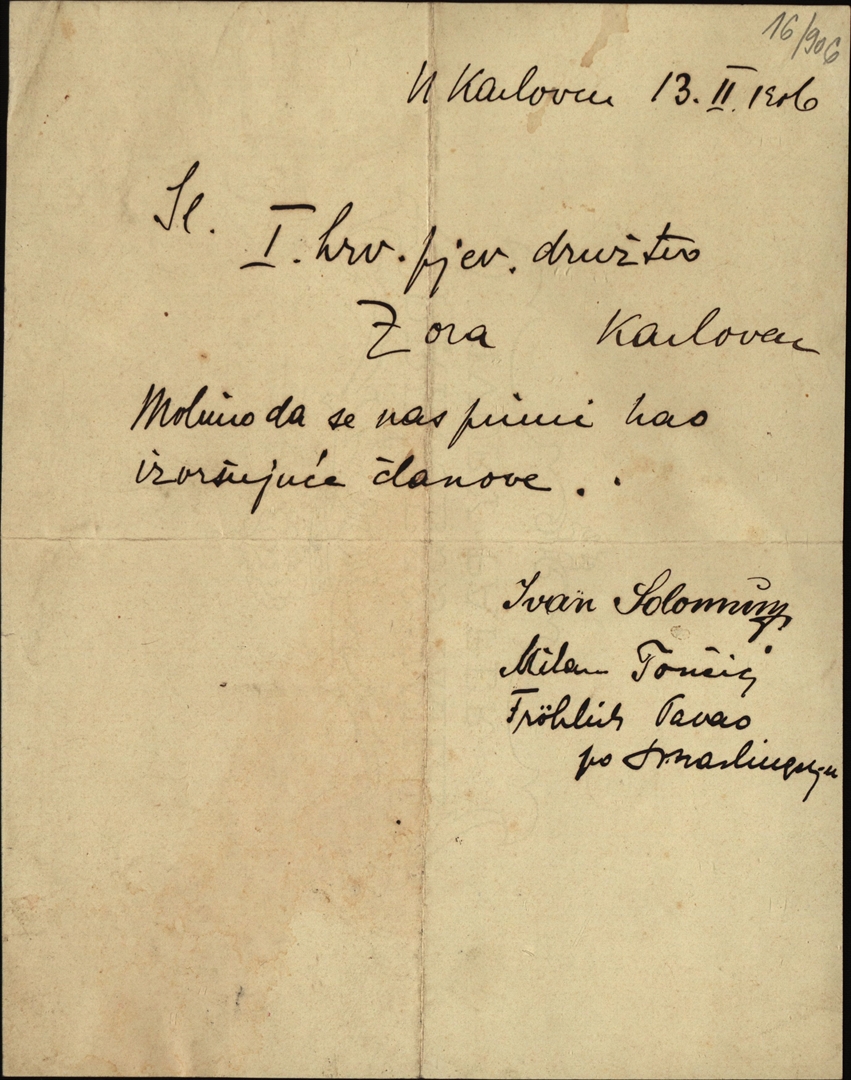 16/906
U Karlovcu 13. II. 1906
Sl.
I. hrv. pjev. družtvo
Zora Karlovac
Molimo da se nas primi kao
izvršujuće članove.
Ivan
Milan Tončić
Fröhlich Pavao
po